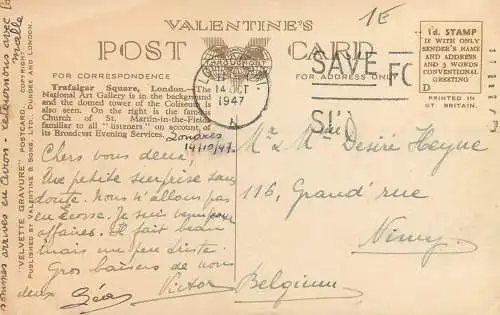 VALENTINE'S
POST CARD
FOR CORRESPONDENCE
FOR ADDRESS ONLY
Trafalgar Square, London.—The
National Art Gallery is in the background
and the domed tower of the Coliseum
also seen. On the right is the famous
Church of St. Martin-in-the-Fields
familiar to all "listeners" on account of
its Broadcast Evening Services.
Londres
14/10/47.
Chers vous deux!
Une petite surprise sans
doute. Nous n'allons pas
en Ecosse. Je suis venu pour
affaires. Il fait beau
mais un peu triste.
Gros baisers de nous
deux Léa Victor
sommes arrivés en avion - retournons avec la
malle
"VELVETTE GRAVURE" POSTCARD.
PUBLISHED BY VALENTINE & SONS, LTD., DUNDEE AND LONDON.
14 OCT
1947
SAVE
1E
1d. STAMP
IF WITH ONLY
SENDER'S NAME
AND ADDRESS
AND 5 WORDS
CONVENTIONAL
GREETING
D
PRINTED IN
GT. BRITAIN.
M. & Mme Désiré Heyne
116, Grand'rue
Nimy
Belgium